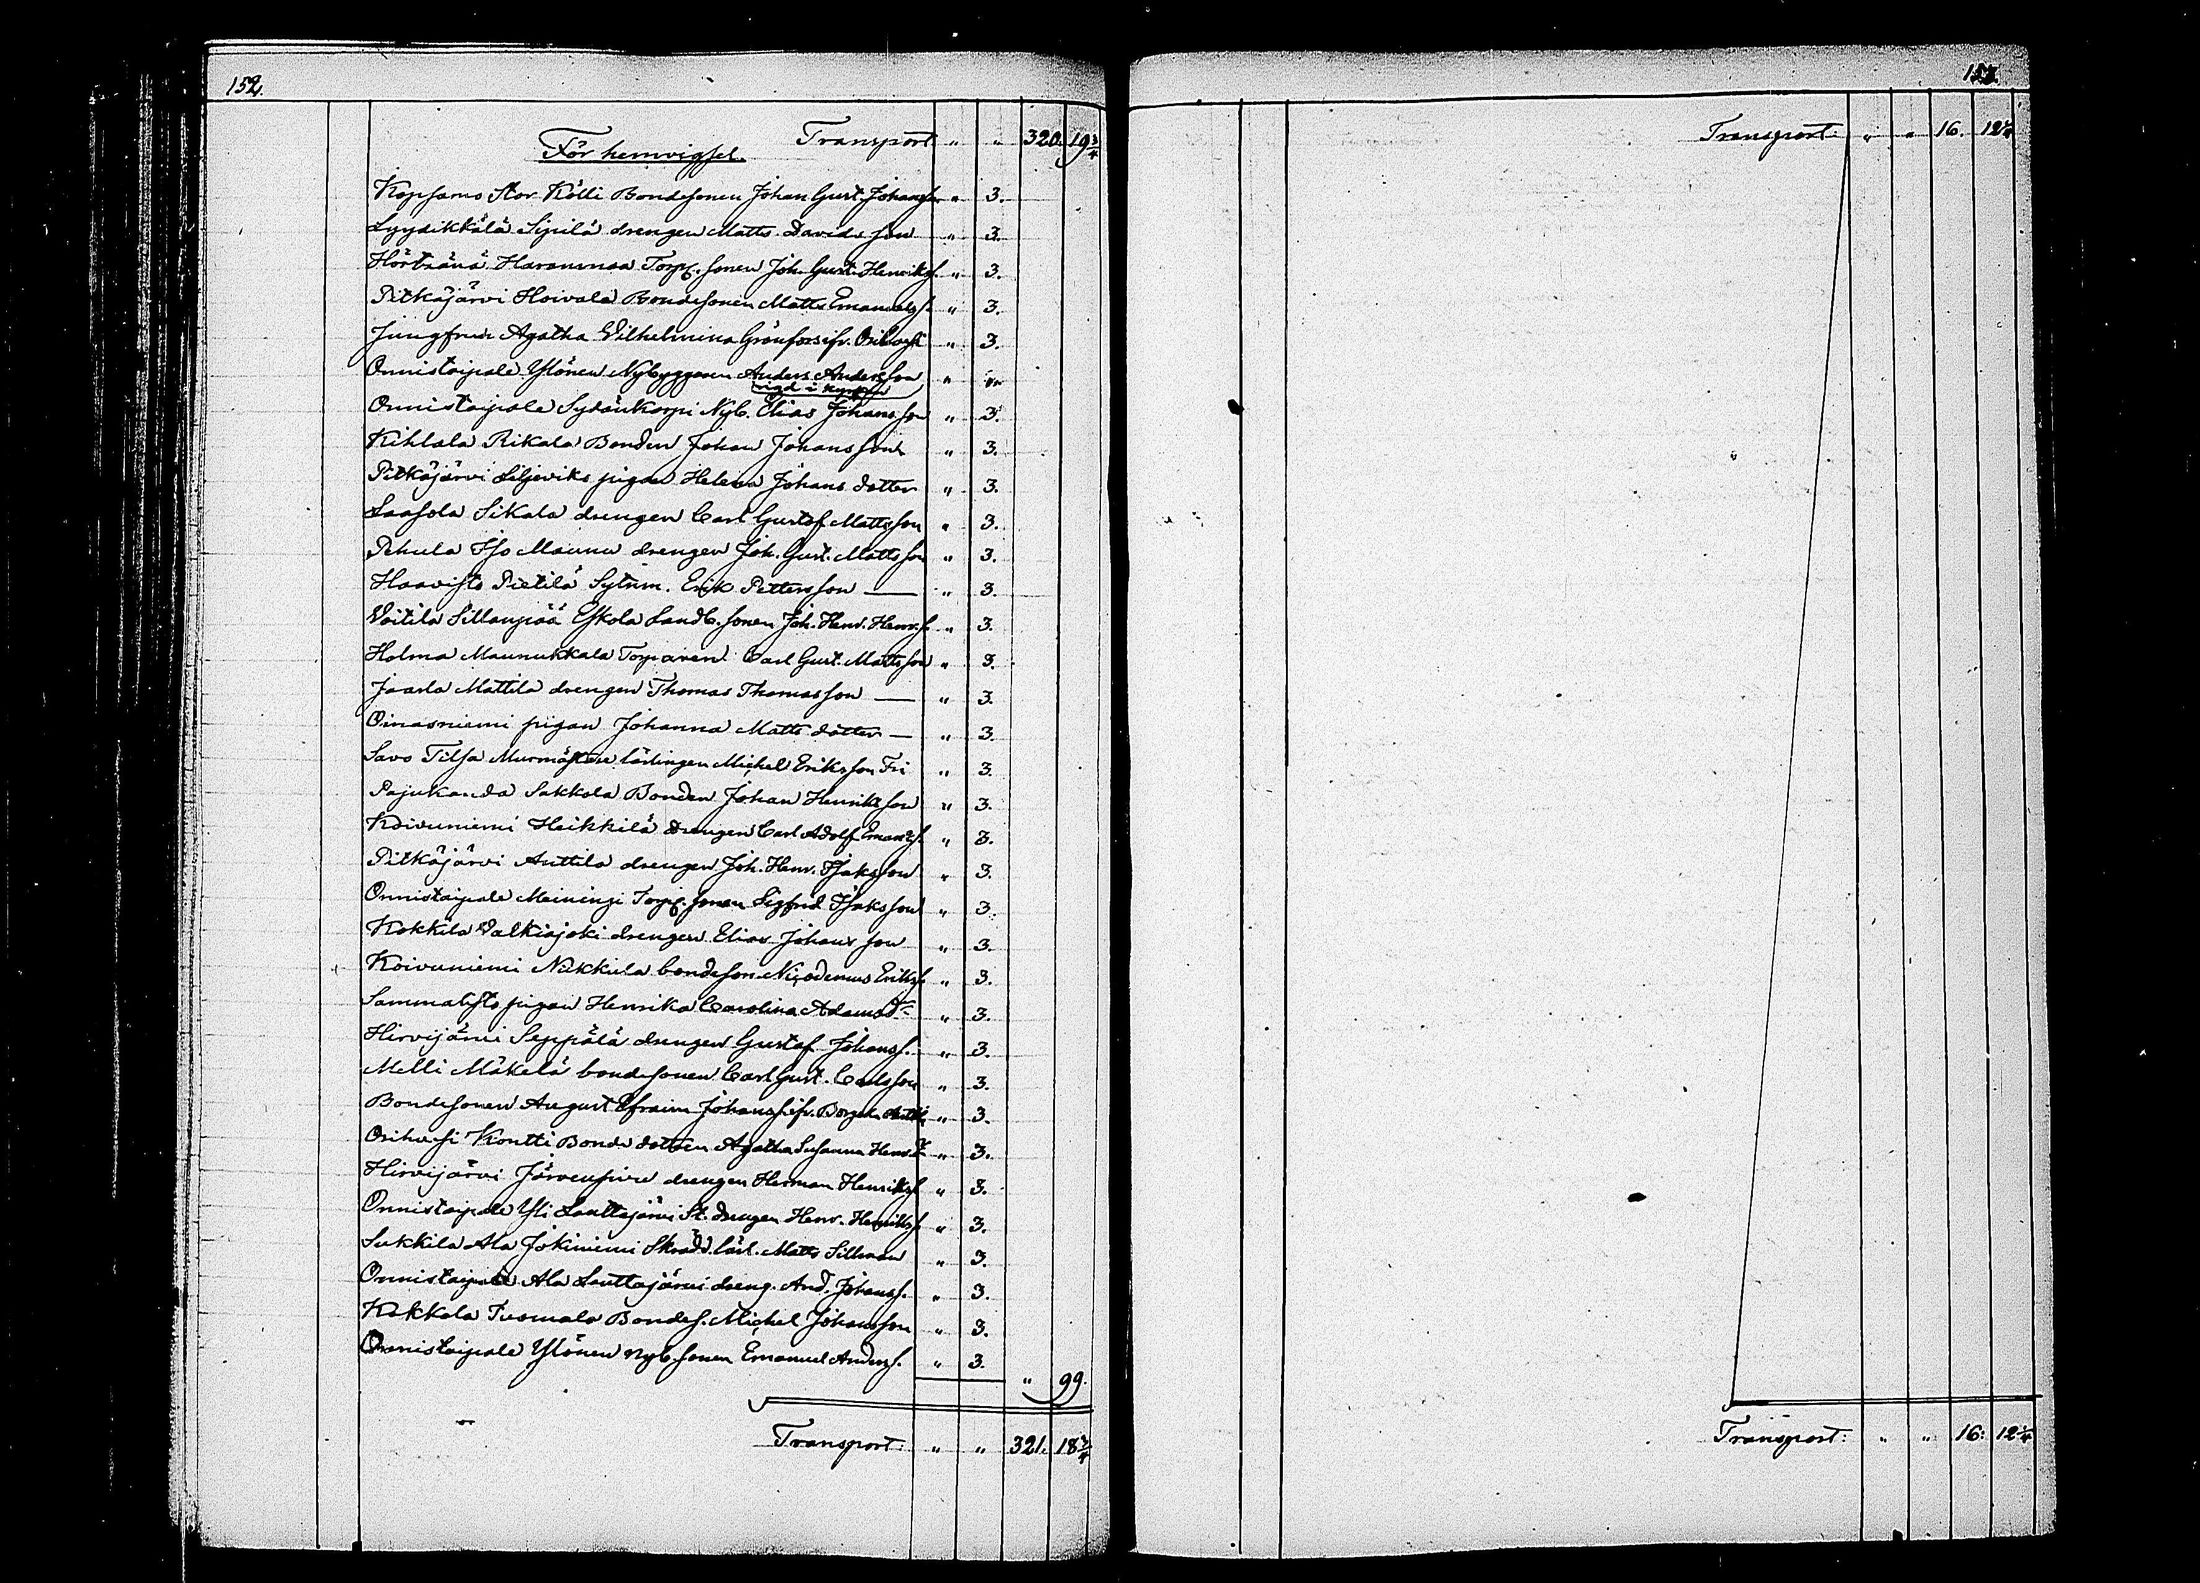 152.
Transport " " 320. 19 3/4
För hemvigsel.
Kopsamo Stor Kölli Bondesonen Johan Gust. Johansson " 3.
Lyydikkälä Sipilä drengen Matts Davidsson " 3.
Hörtsänä Haraumaa Torp. sonen Joh. Gust. Henrikss. " 3.
Pitkäjärvi Hoivala Bondesonen Matts Emanuelss. " 3.
Jungfrun Agatha Wilhelmina Grönfors ifr. Orihvesi " 3.
Onnistaipale Ylönen Nybyggaren Anders Andersson " "
vigd i kyrkan
Onnistaipale Sydänkorpi Nyb. Elias Johansson " 3.
Kihlala Rikala Bonden Johan Johansson " 3.
Pitkäjärvi Liljeviks pigan Helena Johans dotter " 3.
Laasola Sikala drengen Carl Gustaf Mattsson " 3.
Pehula Iso Maunu drengen Joh. Gust. Mattsson " 3.
Haavisto Pietilä Sytnm. Erik Pettersson — " 3.
Voitila Sillanpää Eskola Landb. sonen Joh. Henr. Henr. s. " 3.
Holma Maunukkala Torparen Carl Gust. Mattsson " 3.
Jaarla Mattila drengen Thomas Thomasson — " 3.
Oinasniemi pigan Johanna Matts dotter — " 3.
Savo Tilsa Murmästare lärlingen Michel Eriksson Fri " 3.
Pajukanda Sakkola Bonden Johan Henriksson " 3.
Koivuniemi Heikkilä Drengen Carl Adolf Eman. s. " 3.
Pitkäjärvi Anttila drengen Joh. Henr. Isaksson " 3.
Onnistaipale Meiningi Torp. sonen Sigfrid Isaksson " 3.
Kokkila Valkiajoki drengen Elias Johansson " 3.
Koivuniemi Nikkula bondeson Nicodemus Erikss. " 3.
Sammalisto pigan Henrika Carolina Adamsd:r " 3.
Hirvijärvi Seppälä drengen Gustaf Johanss. " 3.
Melli Mäkelä bondesonen Carl Gust. Carlsson " 3.
Bondesonen August Efraim Johanss. ifr. " 3.
Orihvesi Kontti Bonde dottren Agatha Susanna Henr. d:r " 3.
Hirvijärvi Järvensivu drengen Herman Henrikss. " 3.
Onnistaipale Yli Lauttajärvi St. drengen Henr. Henrikss. " 3.
Sukkila Ala Jokiniemi Skrädd. lärl. Matts Sillman " 3.
Onnistaipale Ala Lauttajärvi dreng. And. Johanss. " 3.
Kokkala Tuomala Bondes. Michel Johansson " 3.
Onnistaipale Ylönen Nyb. sonen Emanuel Anderss. " 3.
" 99.
Transport: " " 321. 18 3/4
153.
Transport: " " 16. 12 1/4
Transport: " " 16: 12 1/4